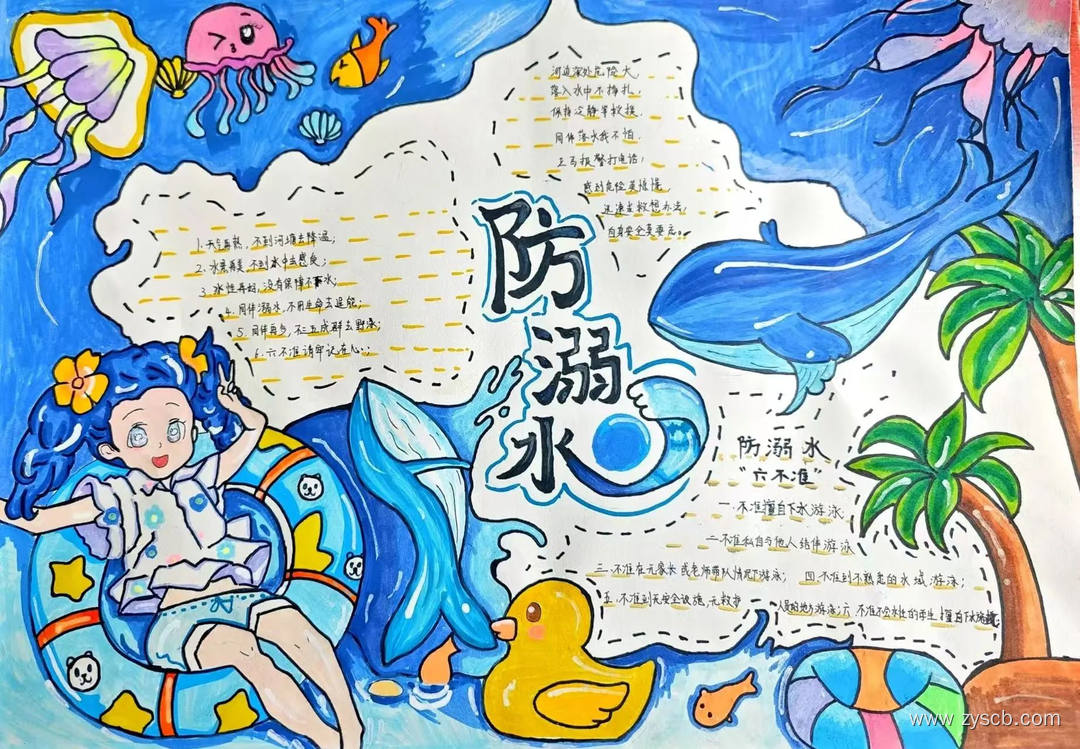 防溺水
河边深处危险大,
落入水中不挣扎,
保持冷静等救援.
同伴落水我不怕.
立马报警打电话,
感到危险莫惊慌,
迅速求救想办法,
自身安全莫要忘。
1.天气再热,不到河塘去降温;
2.水景再美,不到水中去感受;
3.水性再好,没有保障不下水;
4.同伴溺水,不用生命去逞能;
5.同伴再多,不三五成群去野泳;
6.六不准请牢记在心..
防溺水
"六不准"
一.不准擅自下水游泳
二.不准私自与他人结伴游泳
三.不准在无家长或老师带队情况下游泳; 四.不准到不熟悉的水域游泳;
五.不准到无安全设施、无救护
人员的地方游泳;六.不准不会水性的学生擅自下水施救;
www.zyscb.com